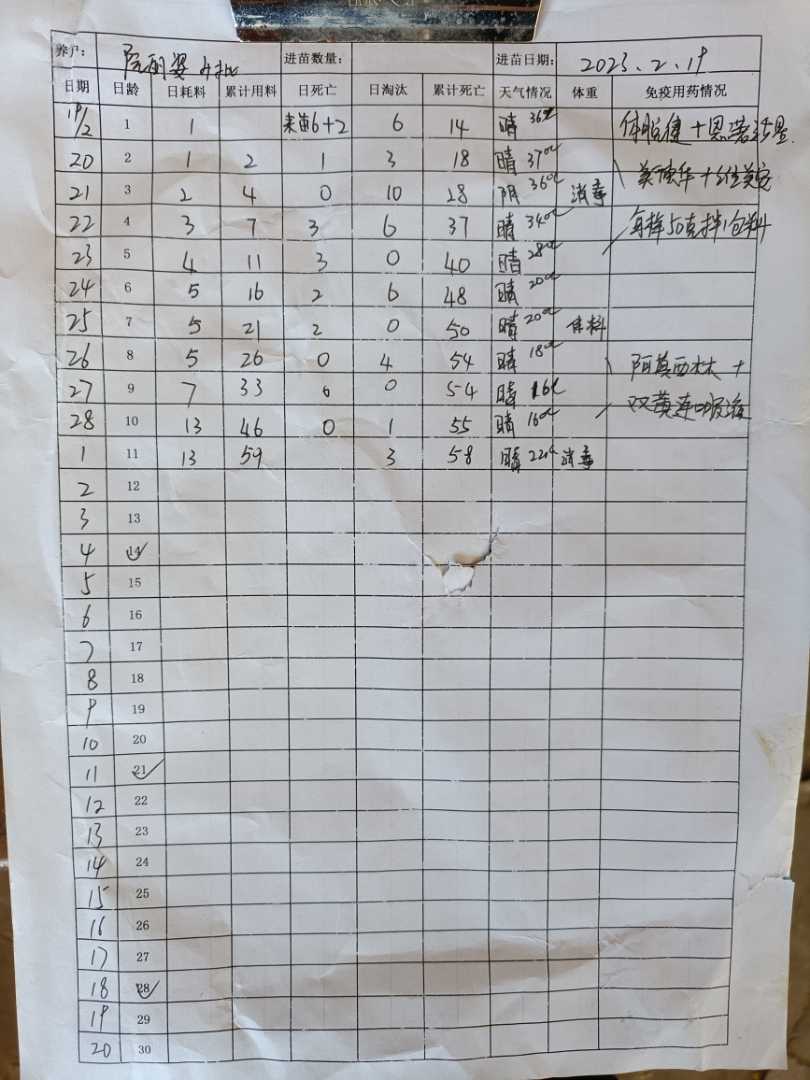 养户: 阮丽婆 4批 进苗数量: 进苗日期: 2023.2.19
日期 日龄 日耗料 累计用料 日死亡 日淘汰 累计死亡 天气情况 体重 免疫用药情况
19/2 1 1 来苗6+2 6 14 晴 36℃
20 2 1 2 1 3 18 晴 37℃
21 3 2 4 0 10 28 阴 36℃ 消毒
22 4 3 7 3 6 37 晴 34℃ 每样50克拌1包料
23 5 4 11 3 0 40 晴 28℃
24 6 5 16 2 6 48 晴 20℃
25 7 5 21 2 0 50 晴 20℃
26 8 5 26 0 4 54 晴 18℃ 阿莫西林 +
27 9 7 33 0 0 54 晴 16℃ 双黄连口服液
28 10 13 46 0 1 55 晴 16℃
1 11 13 59 3 58 晴 22℃ 消毒
2 12
3 13
4 14
5 15
6 16
7 17
8 18
9 19
10 20
11 21
12 22
13 23
14 24
15 25
16 26
17 27
18 28
19 29
20 30